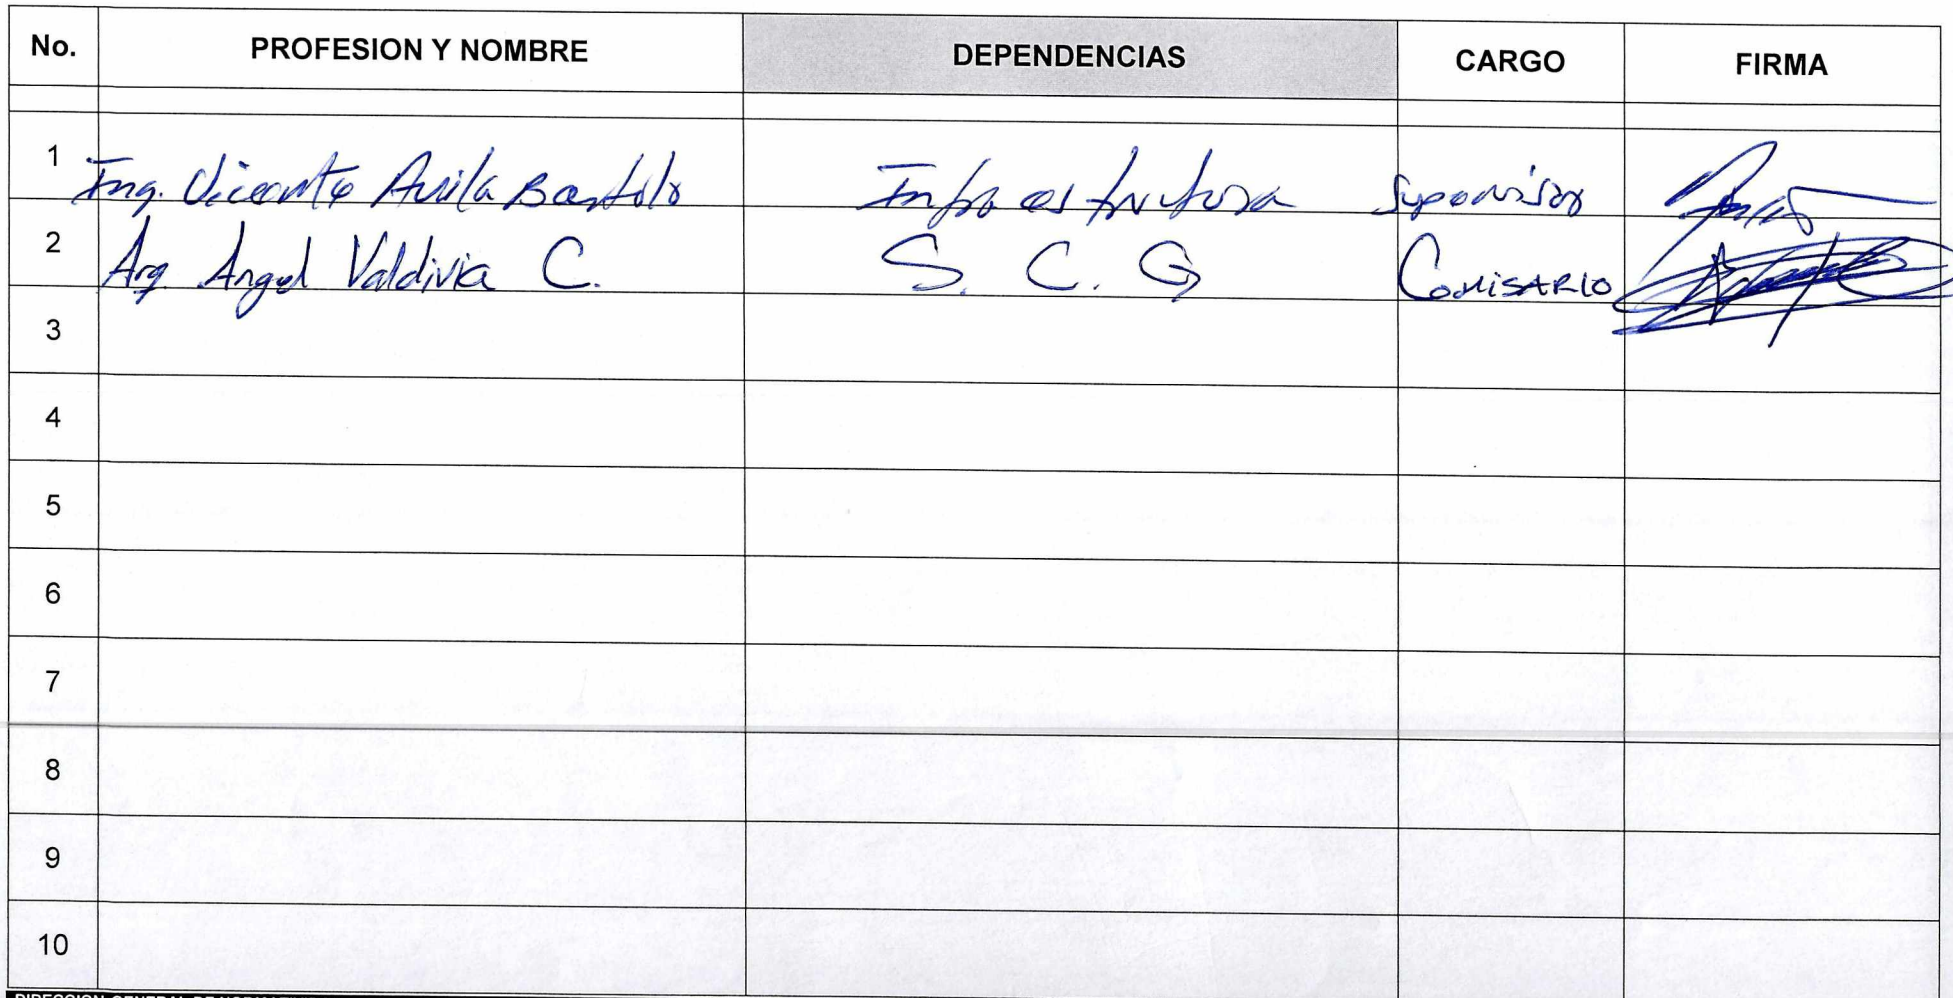 No. PROFESION Y NOMBRE DEPENDENCIAS CARGO FIRMA
1 Ing. Vicente Avila Bartolo Infraestrutura Supervisor
2 Arq. Angel Valdivia C. S. C. G. COMISARIO
3
4
5
6
7
8
9
10
DIRECCION GENERAL DE